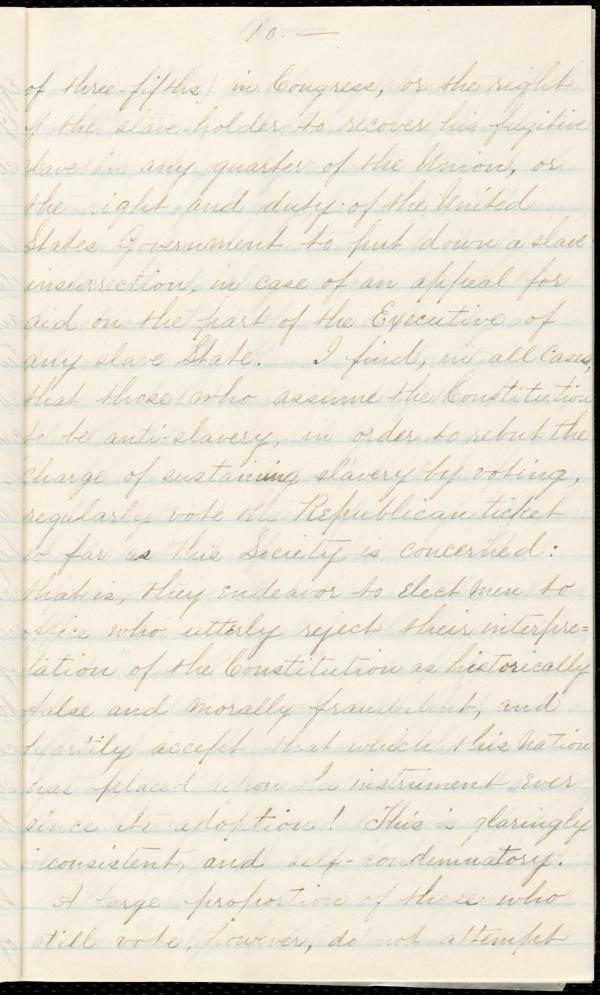 10. —
of three-fifths) in Congress, or the right
of the slave-holder to recover his fugitive
slave in any quarter of the Union, or
the right and duty of the United
States Government to put down a slave
insurrection, in case of an appeal for
aid on the part of the Executive of
any slave State. I find, in all cases,
that those who assume the Constitution
to be anti-slavery, in order to rebut the
charge of sustaining slavery by voting,
regularly vote the Republican ticket
so far as this Society is concerned:
that is, they endeavor to elect men to
office who utterly reject their interpre=
tation of the Constitution as historically
false and morally fraudulent, and
heartily accept that which this Nation
has placed upon the instrument ever
since its adoption! This is glaringly
inconsistent, and self-condemnatory.
A large proportion of those who
still vote, however, do not attempt